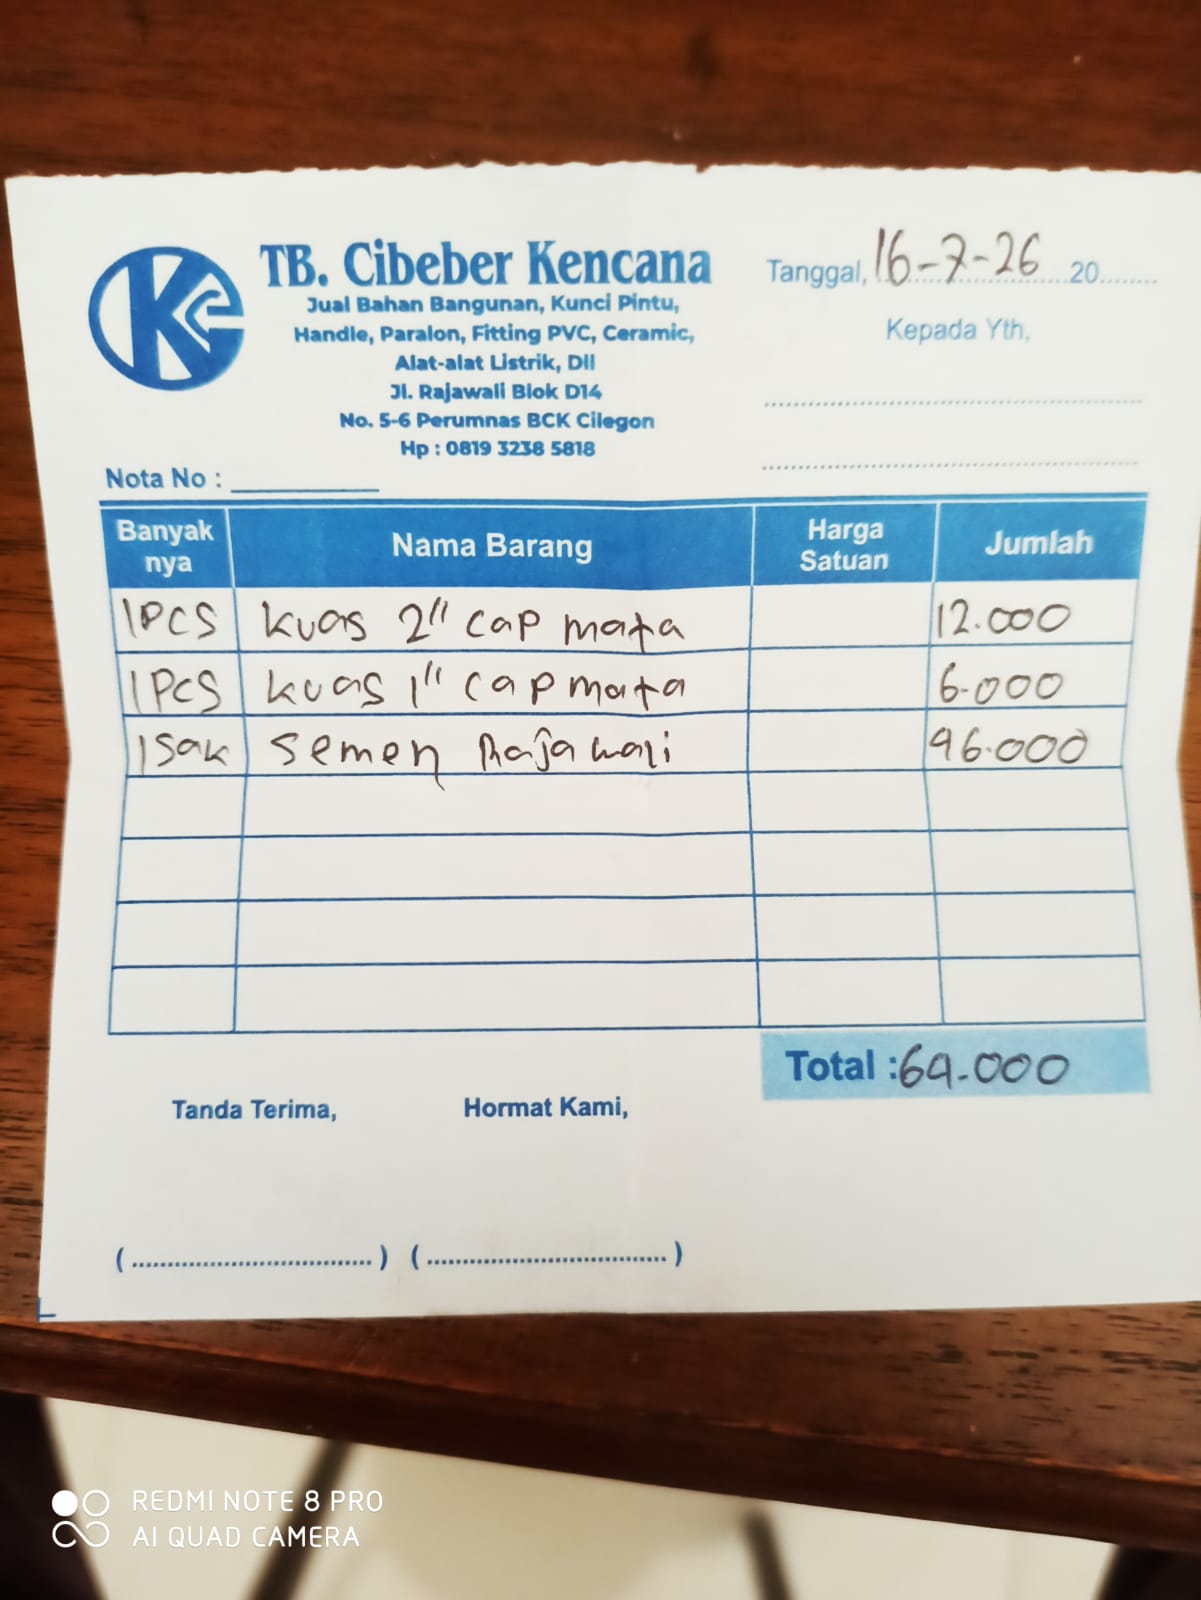 TB. Cibeber Kencana
Jual Bahan Bangunan, Kunci Pintu,
Handle, Paralon, Fitting PVC, Ceramic,
Alat-alat Listrik, Dll
Jl. Rajawali Blok D14
No. 5-6 Perumnas BCK Cilegon
Hp : 0819 3238 5818
Tanggal, 16-7-26 20
Kepada Yth,
Nota No :
Banyak nya Nama Barang Harga Satuan Jumlah
1 PCS kuas 2" cap mata 12.000
1 PCS kuas 1" cap mata 6.000
1 Sak Semen Rajawali 46.000
Total : 64.000
Tanda Terima, Hormat Kami,
REDMI NOTE 8 PRO
AI QUAD CAMERA